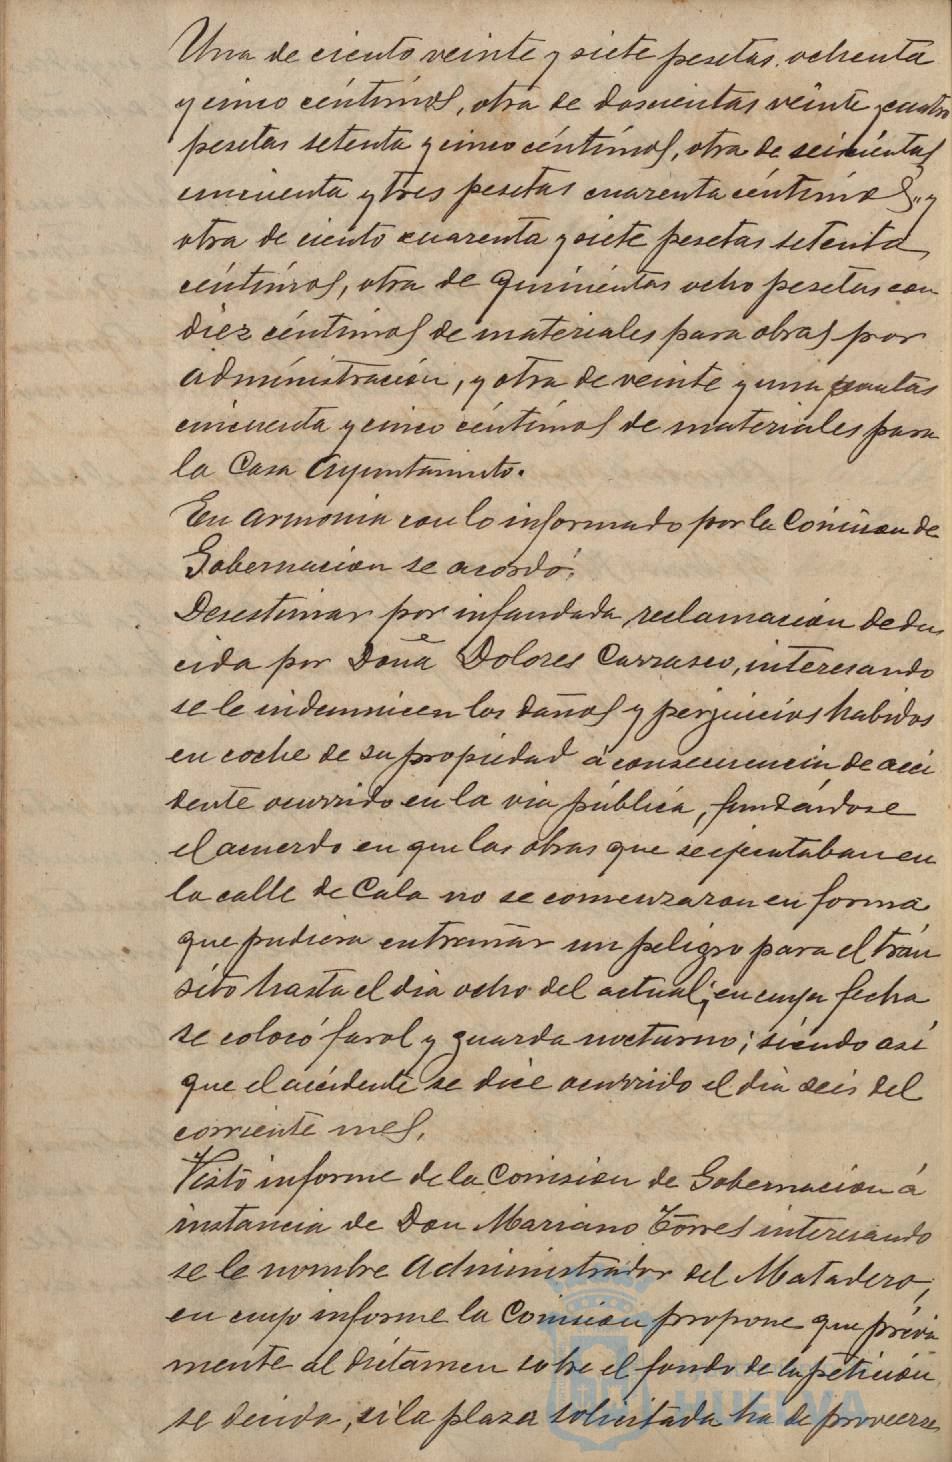 Una de ciento veinte y siete pesetas ochenta
y cinco céntimos, otra de doscientas veinte y cuatro
pesetas setenta y cinco céntimos, otra de seiscientas
cincuenta y tres pesetas cuarenta céntimos, y
otra de ciento cuarenta y siete pesetas setenta
céntimos, otra de quinientas ocho pesetas con
diez céntimos de materiales para obras por
administración, y otra de veinte y una pesetas
cincuenta y cinco céntimos de materiales para
la Casa Ayuntamiento.
En armonia con lo informado por la Comision de
Gobernacion se acordó:
Desestimar por infundada reclamacion dedu
cida por Doña Dolores Carrasco, interesando
se le indemnicen los daños y perjuicios habidos
en coche de su propiedad á consecuencia de acci
dente ocurrido en la via pública, fundándose
el acuerdo en que las obras que se ejecutaban en
la calle de Cala no se comenzaron en forma
que pudiera entrañar un peligro para el trán
sito hasta el dia ocho del actual; en cuya fecha
se colocó farol y guarda nocturno; siendo así
que el accidente se dice ocurrido el dia seis del
corriente mes.
Visto informe de la Comision de Gobernacion á
instancia de Don Mariano Torres interesando
se le nombre Administrador del Matadero,
en cuyo informe la Comision propone que prévia
mente al dictamen sobre el fondo de la peticion
se decida, si la plaza solicitada ha de proveerse
HUELVA